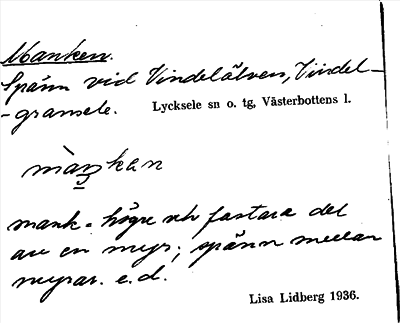 Manken.
Spänn vid Vindelälven, Vindel-
-gransele. Lycksele sn o. tg, Västerbottens l.
màŋkan
mank = högre och fastare del
av en myr; spänn mellan
myrar. e.d.
Lisa Lidberg 1936.